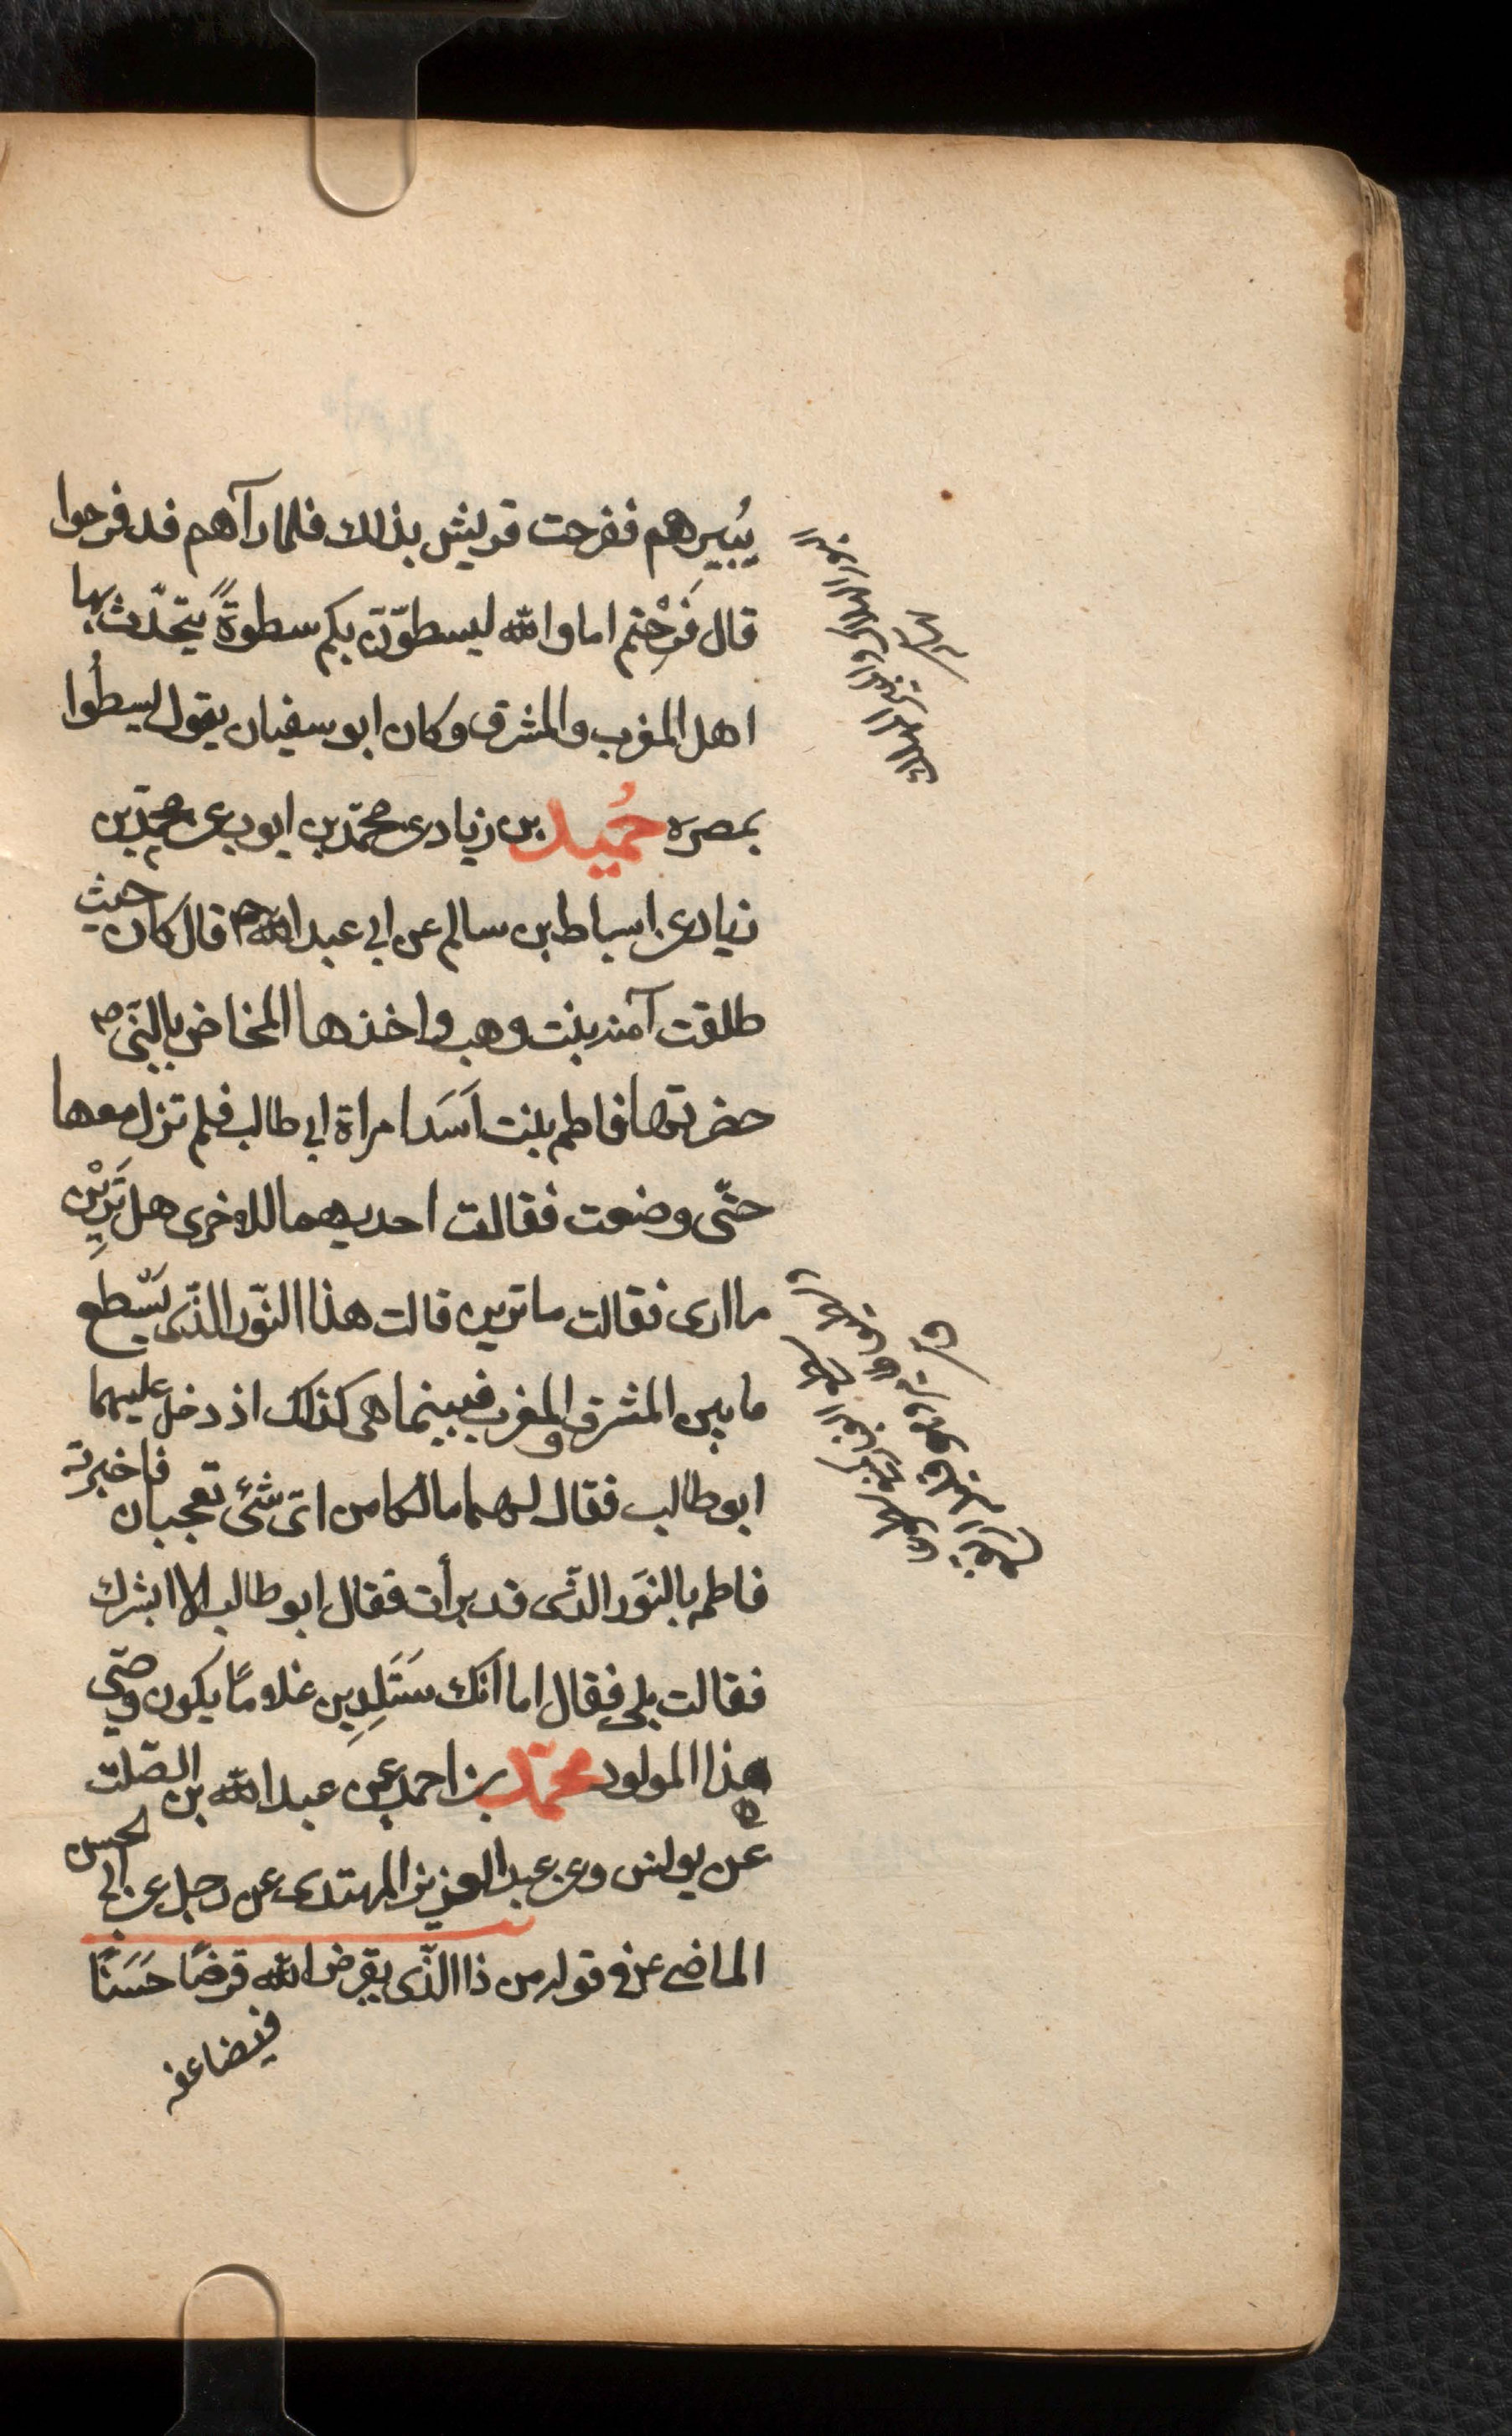 يُبيرهم ففرحت قريش بذلك فلما رآهم قد فرحوا
قال فَرِحْتم اما والله ليسطوّنّ بكم سطوةً يتحّدث بها
اهل المغرب والمشرق وكان ابو سفيان يقول ليسطُوا
بمصره حُميد بن زياد عن محمّد بن ايوب عن محمّد بن
زياد عن اسباط بن سالم عن ابي عبد الله ع قال كان حيث
طلقت آمنه بنت وهب واخذها المخاض بالنّبى ص
حضرتها فاطمه بنت اَسَد امراة ابي طالب فلم تزل معها
حتّى وضعت فقالت احديهما للاخرى هل تَرَيْن
ما ارى فقالت ما ترين قالت هذا النّور الذّى يسّطع
ما بين المشرق والمغرب فبينما هى كذلك اذ دخل عليهما
ابو طالب فقال لهما ما لكما من اىّ شىٔ تعجبان فاخبرته
فاطمه بالنوّر الذّى قد رأت فقال ابو طالب الا ابشرك
فقالت بلى فقال اما انّك سَتَلِدين غلامًا يكون وصّي
هذا المولود محمّد بن احمد عن عبد الله بن الصّلت
عن يونس وعن عبد العزيز المهتدى عن رجل عن ابي الحسن
الماضى ع فى قوله من ذا الذّى يقرض الله قرضًا حَسَنًا
فيضاعفه